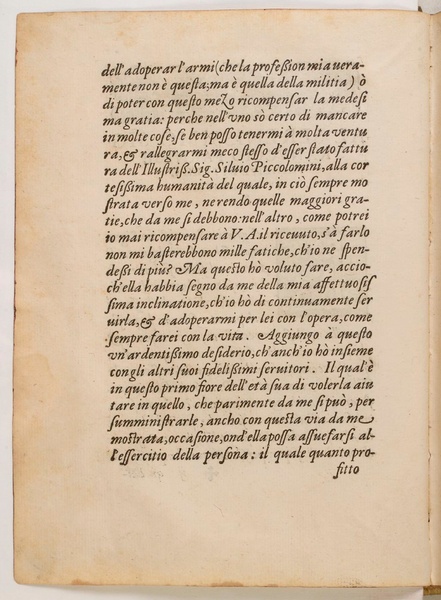 dell'adoperar l'armi (che la profeſsion mia uera-
mente non è queſta; ma è quella della militia) ò
di poter con queſto mezo ricompenſar la medeſi
ma gratia: perche nell'vno sò certo di mancare
in molte coſe, ſe ben poſſo tenermi à molta ventu
ra, & rallegrarmi meco ſteſſo d'eſſer ſtato fattu
ra dell'Illuſtriſs. Sig. Siluio Piccolomini, alla cor
teſiſsima humanità del quale, in ciò ſempre mo
ſtrata verſo me, ne rendo quelle maggiori gra-
tie, che da me ſi debbono: nell'altro, come potrei
io mai ricompenſare à V. A. il riceuuto, s'à farlo
non mi baſterebbono mille fatiche, ch'io ne ſpen-
deſsi di più? Ma queſto hò voluto fare, accio-
ch'ella habbia ſegno da me della mia affettuoſiſ
ſima inclinatione, ch'io hò di continuamente ſer
uirla, & d'adoperarmi per lei con l'opera, come
ſempre farei con la vita. Aggiungo à queſto
vn'ardentiſsimo deſiderio, ch'anch'io hò inſieme
con gli altri ſuoi fideliſsimi ſeruitori. Il qual'è
in queſto primo fiore dell'età ſua di volerla aiu
tare in quello, che parimente da me ſi può, per
ſumminiſtrarle, ancho con queſta via da me
moſtrata, occaſione, ond'ella poſſa aſſuefarſi al-
l'eſſercitio della perſona: il quale quanto pro-
fitto